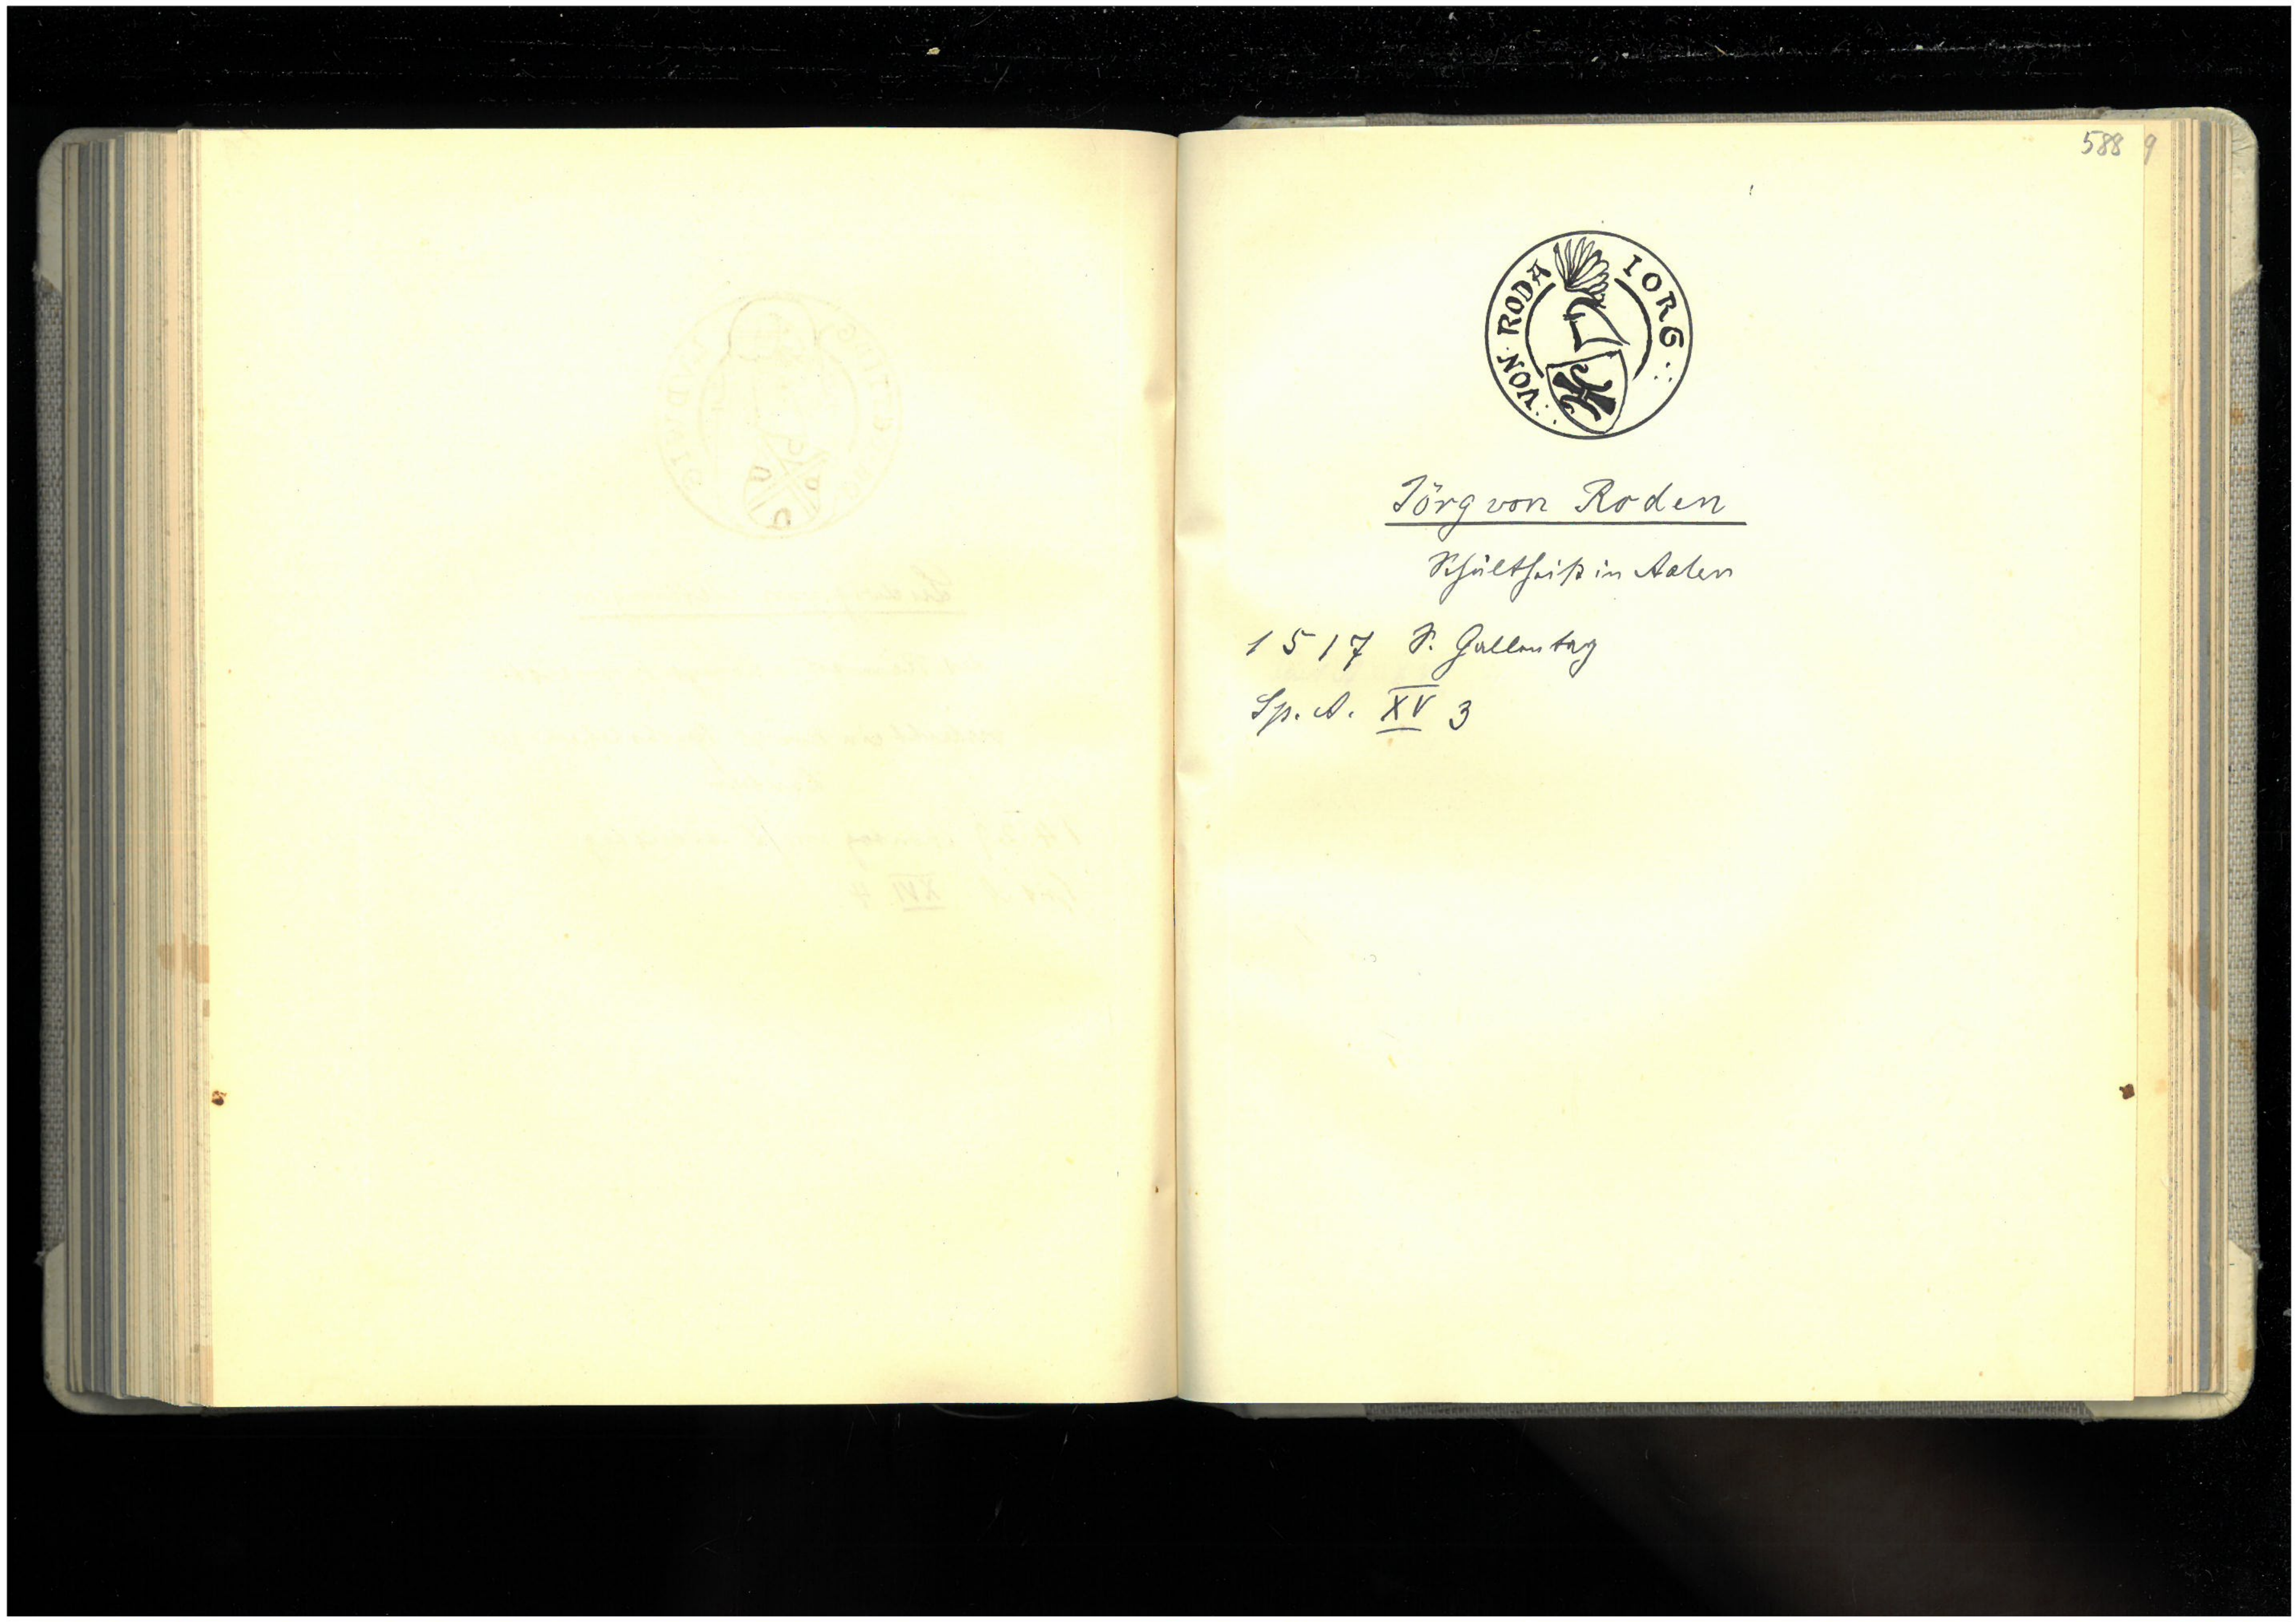 588 9
IORG VON RODA
Jörg von Roden
Schultheiß in Aalen
1517 S. Gallentag
Sp. A. XV 3